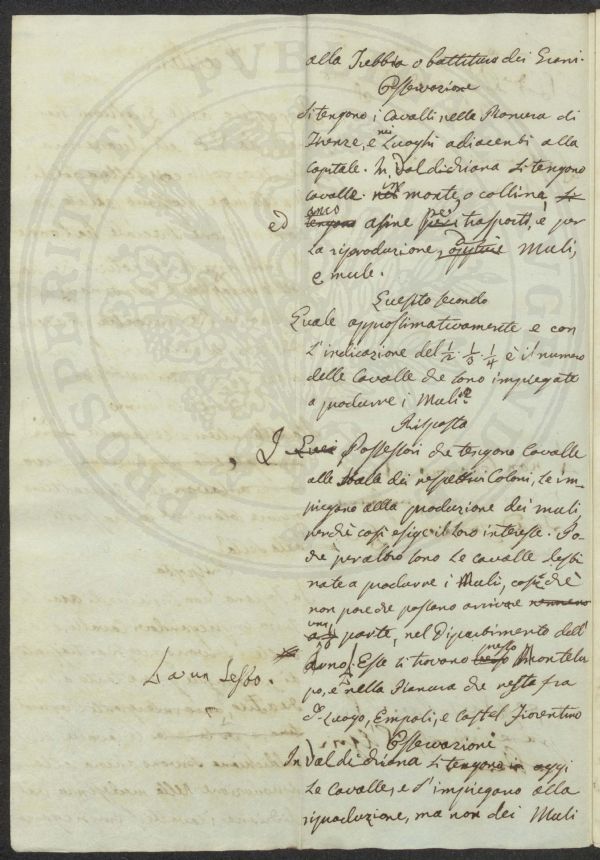 alla Trebbia o battitura dei Grani.
Osservazione
Si tengono i Cavalli nella Pianura di
Firenze, e nei Luoghi adiacenti alla
Capitale. In Valdichiana si tengono
Cavalle. nel monte, o collina si
ed tengono anco asine per i trasporti, e per
la riproduzione, di Muli,
e mule.
Quesito secondo
Quale approssimativamente e con
l'indicazione del 1/2. 1/3. 1/4 è il numero
delle Cavalle che sono impiegate
a produrre i Muli?
Risposta
I Possessori che tengono Cavalle
alle Stalle dei rispettivi Coloni, le im-
piegano alla produzione dei muli
perchè così esige il loro interesse. Po-
che peraltro sono le Cavalle desti
nate a produrre i Muli, cosichè
non pare che possano arrivare nemmeno
a parte, nel Dipartimento dell'
La un sesto.
Arno. Esse si trovano presso Montelu
po, e nella Pianura che resta fra
do. Luogo, Empoli, e Castel Fiorentino
Osservazioni
In Valdichiana si tengono in oggi
le Cavalle, e s'impiegano alla
riproduzione, ma non dei Muli
PROSPERITATI PVBLICAE AVGENDAE